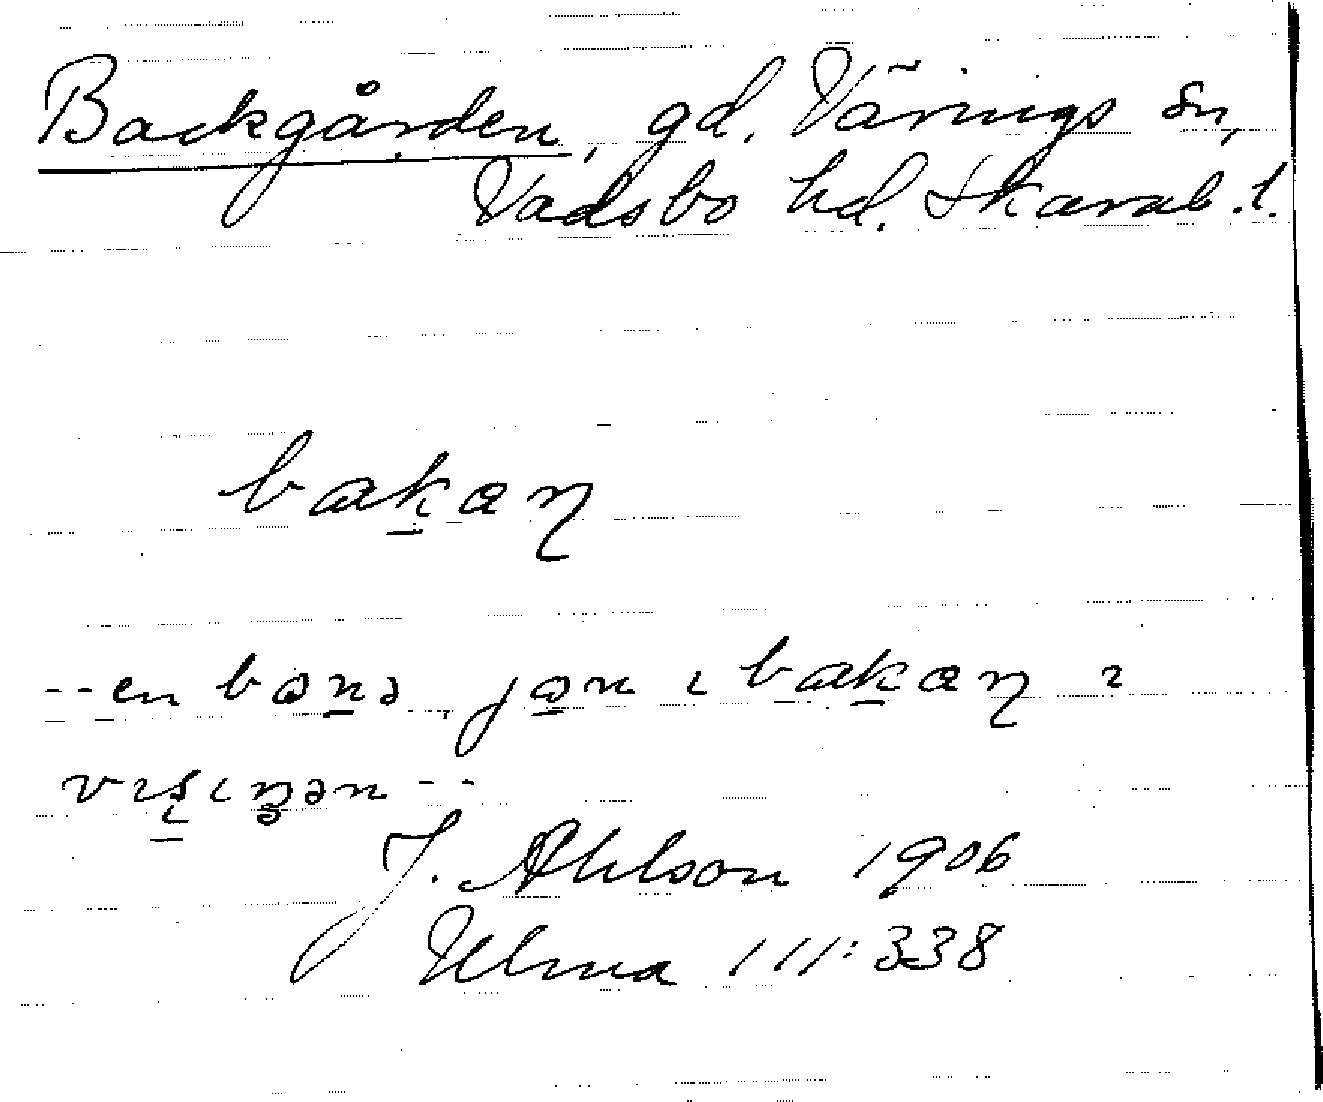 Backgården, gd. Värings sn,
Vadsbo hd. Skarab. l.
bakaɳ
--en bonə, jon ι bakaɳ ı
J. Ahlson 1906
Ulma 111:338